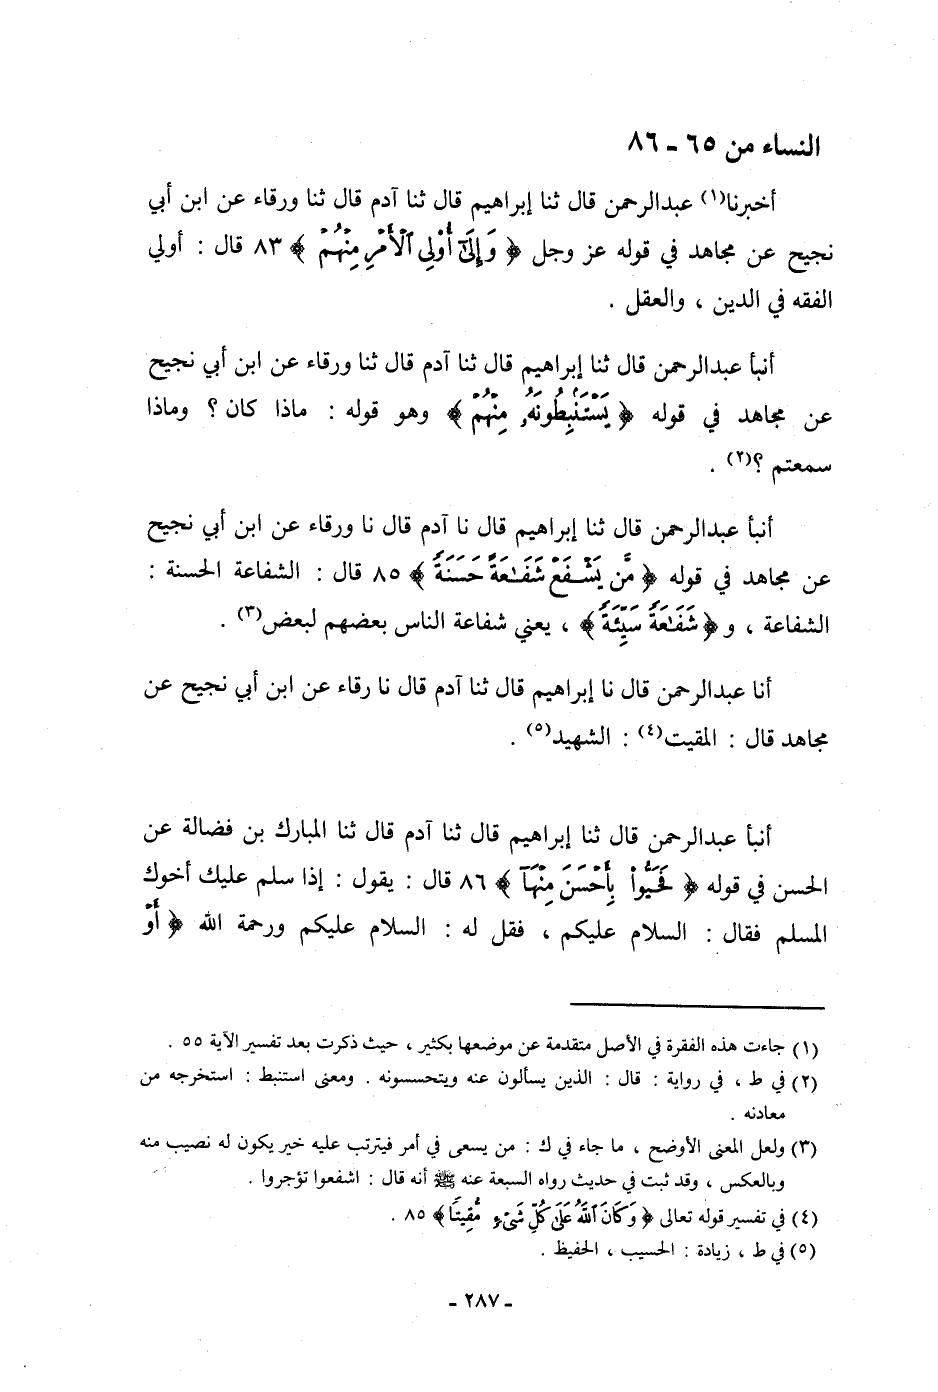 النساء من ٦٥ - ٨٦
أخبرنا(١) عبدالرحمن قال ثنا إبراهيم قال ثنا آدم قال ثنا ورقاء عن ابن أبي
نجيح عن مجاهد في قوله عز وجل ﴿ وَإِلَىٰٓ أُوْلِي ٱلۡأَمۡرِ مِنۡهُمۡ ﴾ ٨٣ قال : أولي
الفقه في الدين ، والعقل .
أنبأ عبدالرحمن قال ثنا إبراهيم قال ثنا آدم قال ثنا ورقاء عن ابن أبي نجيح
عن مجاهد في قوله ﴿ يَسۡتَنۢبِطُونَهُۥ مِنۡهُمۡ ﴾ وهو قوله : ماذا كان ؟ وماذا
سمعتم ؟(٢) .
أنبأ عبدالرحمن قال ثنا إبراهيم قال نا آدم قال نا ورقاء عن ابن أبي نجيح
عن مجاهد في قوله ﴿ مَّن يَشۡفَعۡ شَفَٰعَةً حَسَنَةً ﴾ ٨٥ قال : الشفاعة الحسنة :
الشفاعة ، و ﴿ شَفَٰعَةً سَيِّئَةً ﴾ ، يعني شفاعة الناس بعضهم لبعض(٣) .
أنا عبدالرحمن قال نا إبراهيم قال ثنا آدم قال نا رقاء عن ابن أبي نجيح عن
مجاهد قال : المقيت(٤) : الشهيد(٥) .
أنبأ عبدالرحمن قال ثنا إبراهيم قال ثنا آدم قال ثنا المبارك بن فضالة عن
الحسن في قوله ﴿ فَحَيُّواْ بِأَحۡسَنَ مِنۡهَآ ﴾ ٨٦ قال : يقول : إذا سلم عليك أخوك
المسلم فقال : السلام عليكم ، فقل له : السلام عليكم ورحمة الله ﴿ أَوۡ
(١) جاءت هذه الفقرة في الأصل متقدمة عن موضعها بكثير ، حيث ذكرت بعد تفسير الآية ٥٥ .
(٢) في ط ، في رواية : قال : الذين يسألون عنه ويتحسسونه . ومعنى استنبط : استخرجه من
معادنه .
(٣) ولعل المعنى الأوضح ، ما جاء في ك : من يسعى في أمر فيترتب عليه خير يكون له نصيب منه
وبالعكس ، وقد ثبت في حديث رواه السبعة عنه ﷺ أنه قال : اشفعوا تؤجروا .
(٤) في تفسير قوله تعالى ﴿ وَكَانَ ٱللَّهُ عَلَىٰ كُلِّ شَيۡءٖ مُّقِيتٗا ﴾ ٨٥ .
(٥) في ط ، زيادة : الحسيب ، الحفيظ .
- ٢٨٧ -